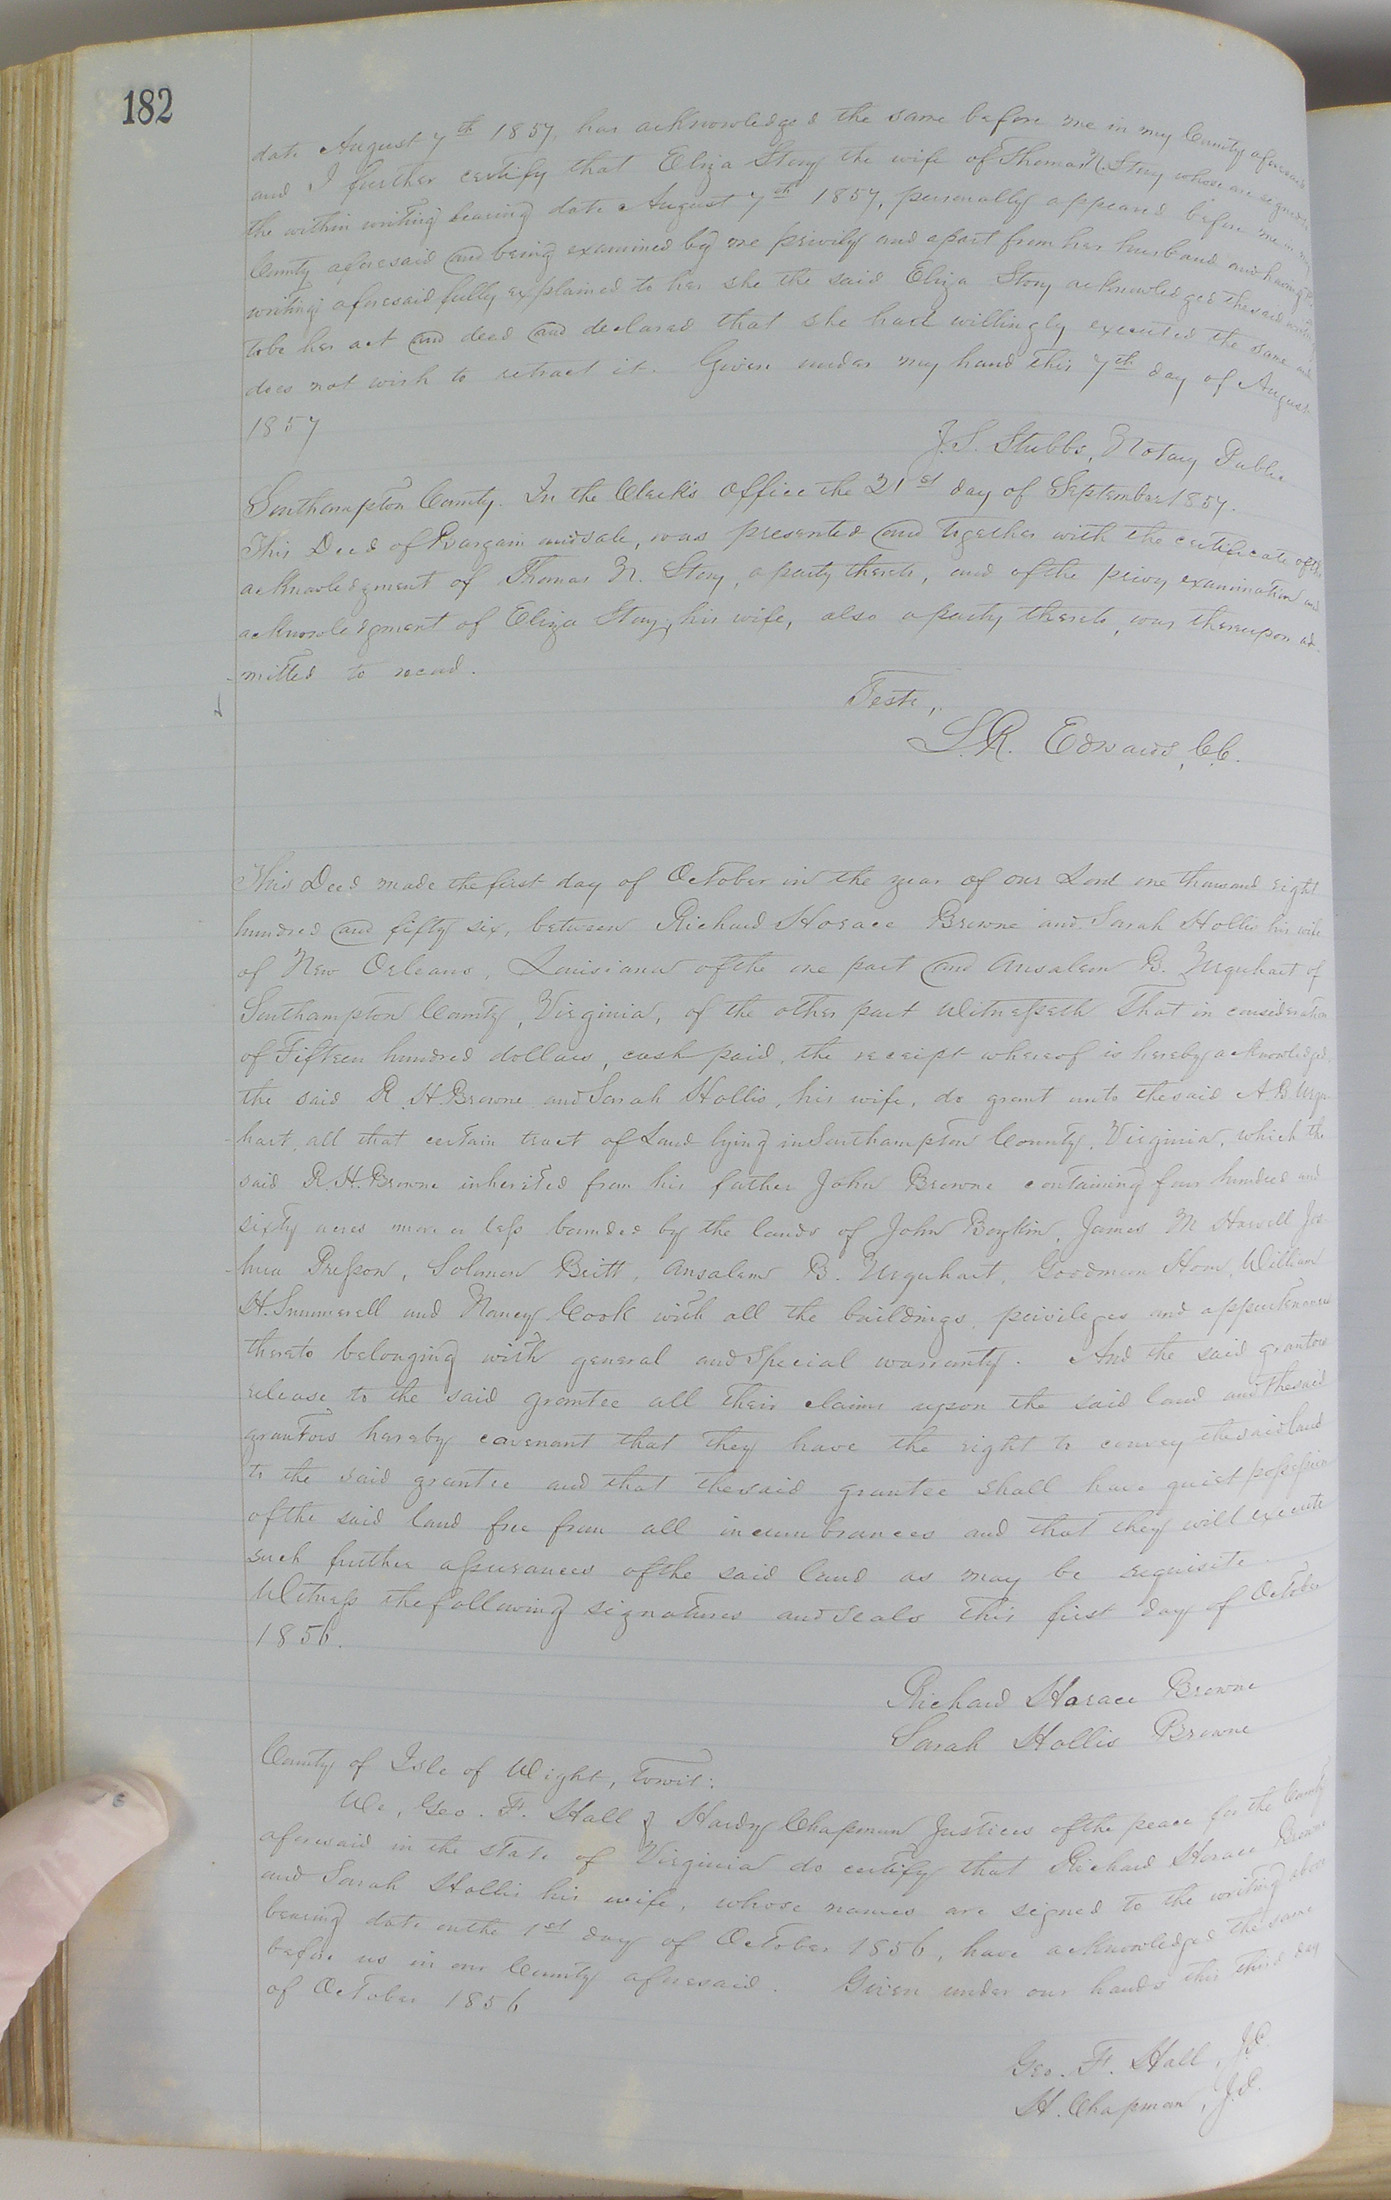 182
date August 7th 1857, has acknowledged the same before me in my County aforesaid
and I further certify that Eliza Story the wife of Thomas N. Story whose are signed
the within writing bearing date August 7th 1857, personally appeared before me in my
County aforesaid and being examined by me privily and apart from her husband and having
writing aforesaid fully explained to her she the said Eliza Story acknowledged the said writing
to be her act and deed and declared that she had willingly executed the same and
does not wish to retract it. Given under my hand this 7th day of August
1857
J. S. Stubbs, Notary Public
Southampton County. In the Clerk's office the 21st day of September 1857.
This Deed of Bargain and sale, was presented and together with the certificate of the
acknowledgment of Thomas N. Story, a party thereto, and of the privy examination and
acknowledgment of Eliza Story, his wife, also a party thereto, was thereupon ad-
mitted to record.
Teste,
L. R. Edwards, C.C.
This Deed made the first day of October in the year of our Lord one thousand eight
hundred and fifty six, between Richard Horace Browne and Sarah Hollis his wife
of New Orleans, Louisiana of the one part and Ansalem B. Urquhart of
Southampton County, Virginia, of the other part Witnesseth That in consideration
of Fifteen hundred dollars, cash paid, the receipt whereof is hereby acknowledged
the said R. H. Browne and Sarah Hollis, his wife, do grant unto the said A. B. Urqu-
hart, all that certain tract of Land lying in Southampton County, Virginia, which the
said R. H. Browne inherited from his father John Browne containing four hundred and
sixty acres more or less bounded by the lands of John Boykin, James M Howell Jos-
hua Presson, Solomon Britt, Ansalem B. Urquhart, Goodman Horn, William
H. Summerell and Nancy Cook with all the buildings, privileges and appurtenances
thereto belonging with general and special warranty. And the said grantors
release to the said grantee all their claims upon the said land and the said
grantors hereby covenant that they have the right to convey the said land
to the said grantee and that the said grantee shall have quiet possession
of the said land free from all incumbrances and that they will execute
such further assurances of the said land as may be requisite.
Witness the following signatures and seals this first day of October
1856.
Richard Horace Browne
Sarah Hollis Browne
County of Isle of Wight, Towit:
We, Geo. F. Hall & Hardy Chapman Justices of the peace for the County
aforesaid in the state of Virginia do certify that Richard Horace Browne
and Sarah Hollis his wife, whose names are signed to the writing above
bearing date on the 1st day of October 1856, have acknowledged the same
before us in our County aforesaid. Given under our hands this third day
of October 1856
Geo. F. Hall, J.P.
H. Chapman, J.P.